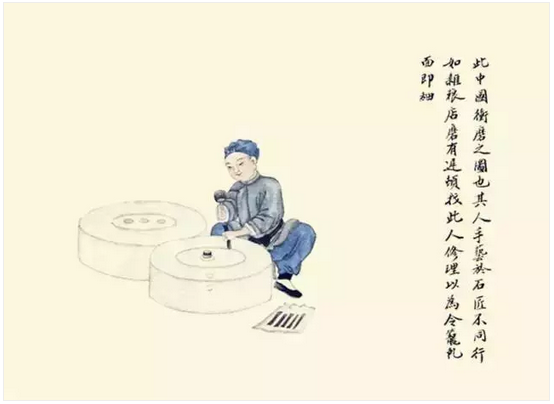 此中國衝磨之圖也其人手藝於石匠不同行
如雜粮店磨有遲頓找此人修理以為令
面即細